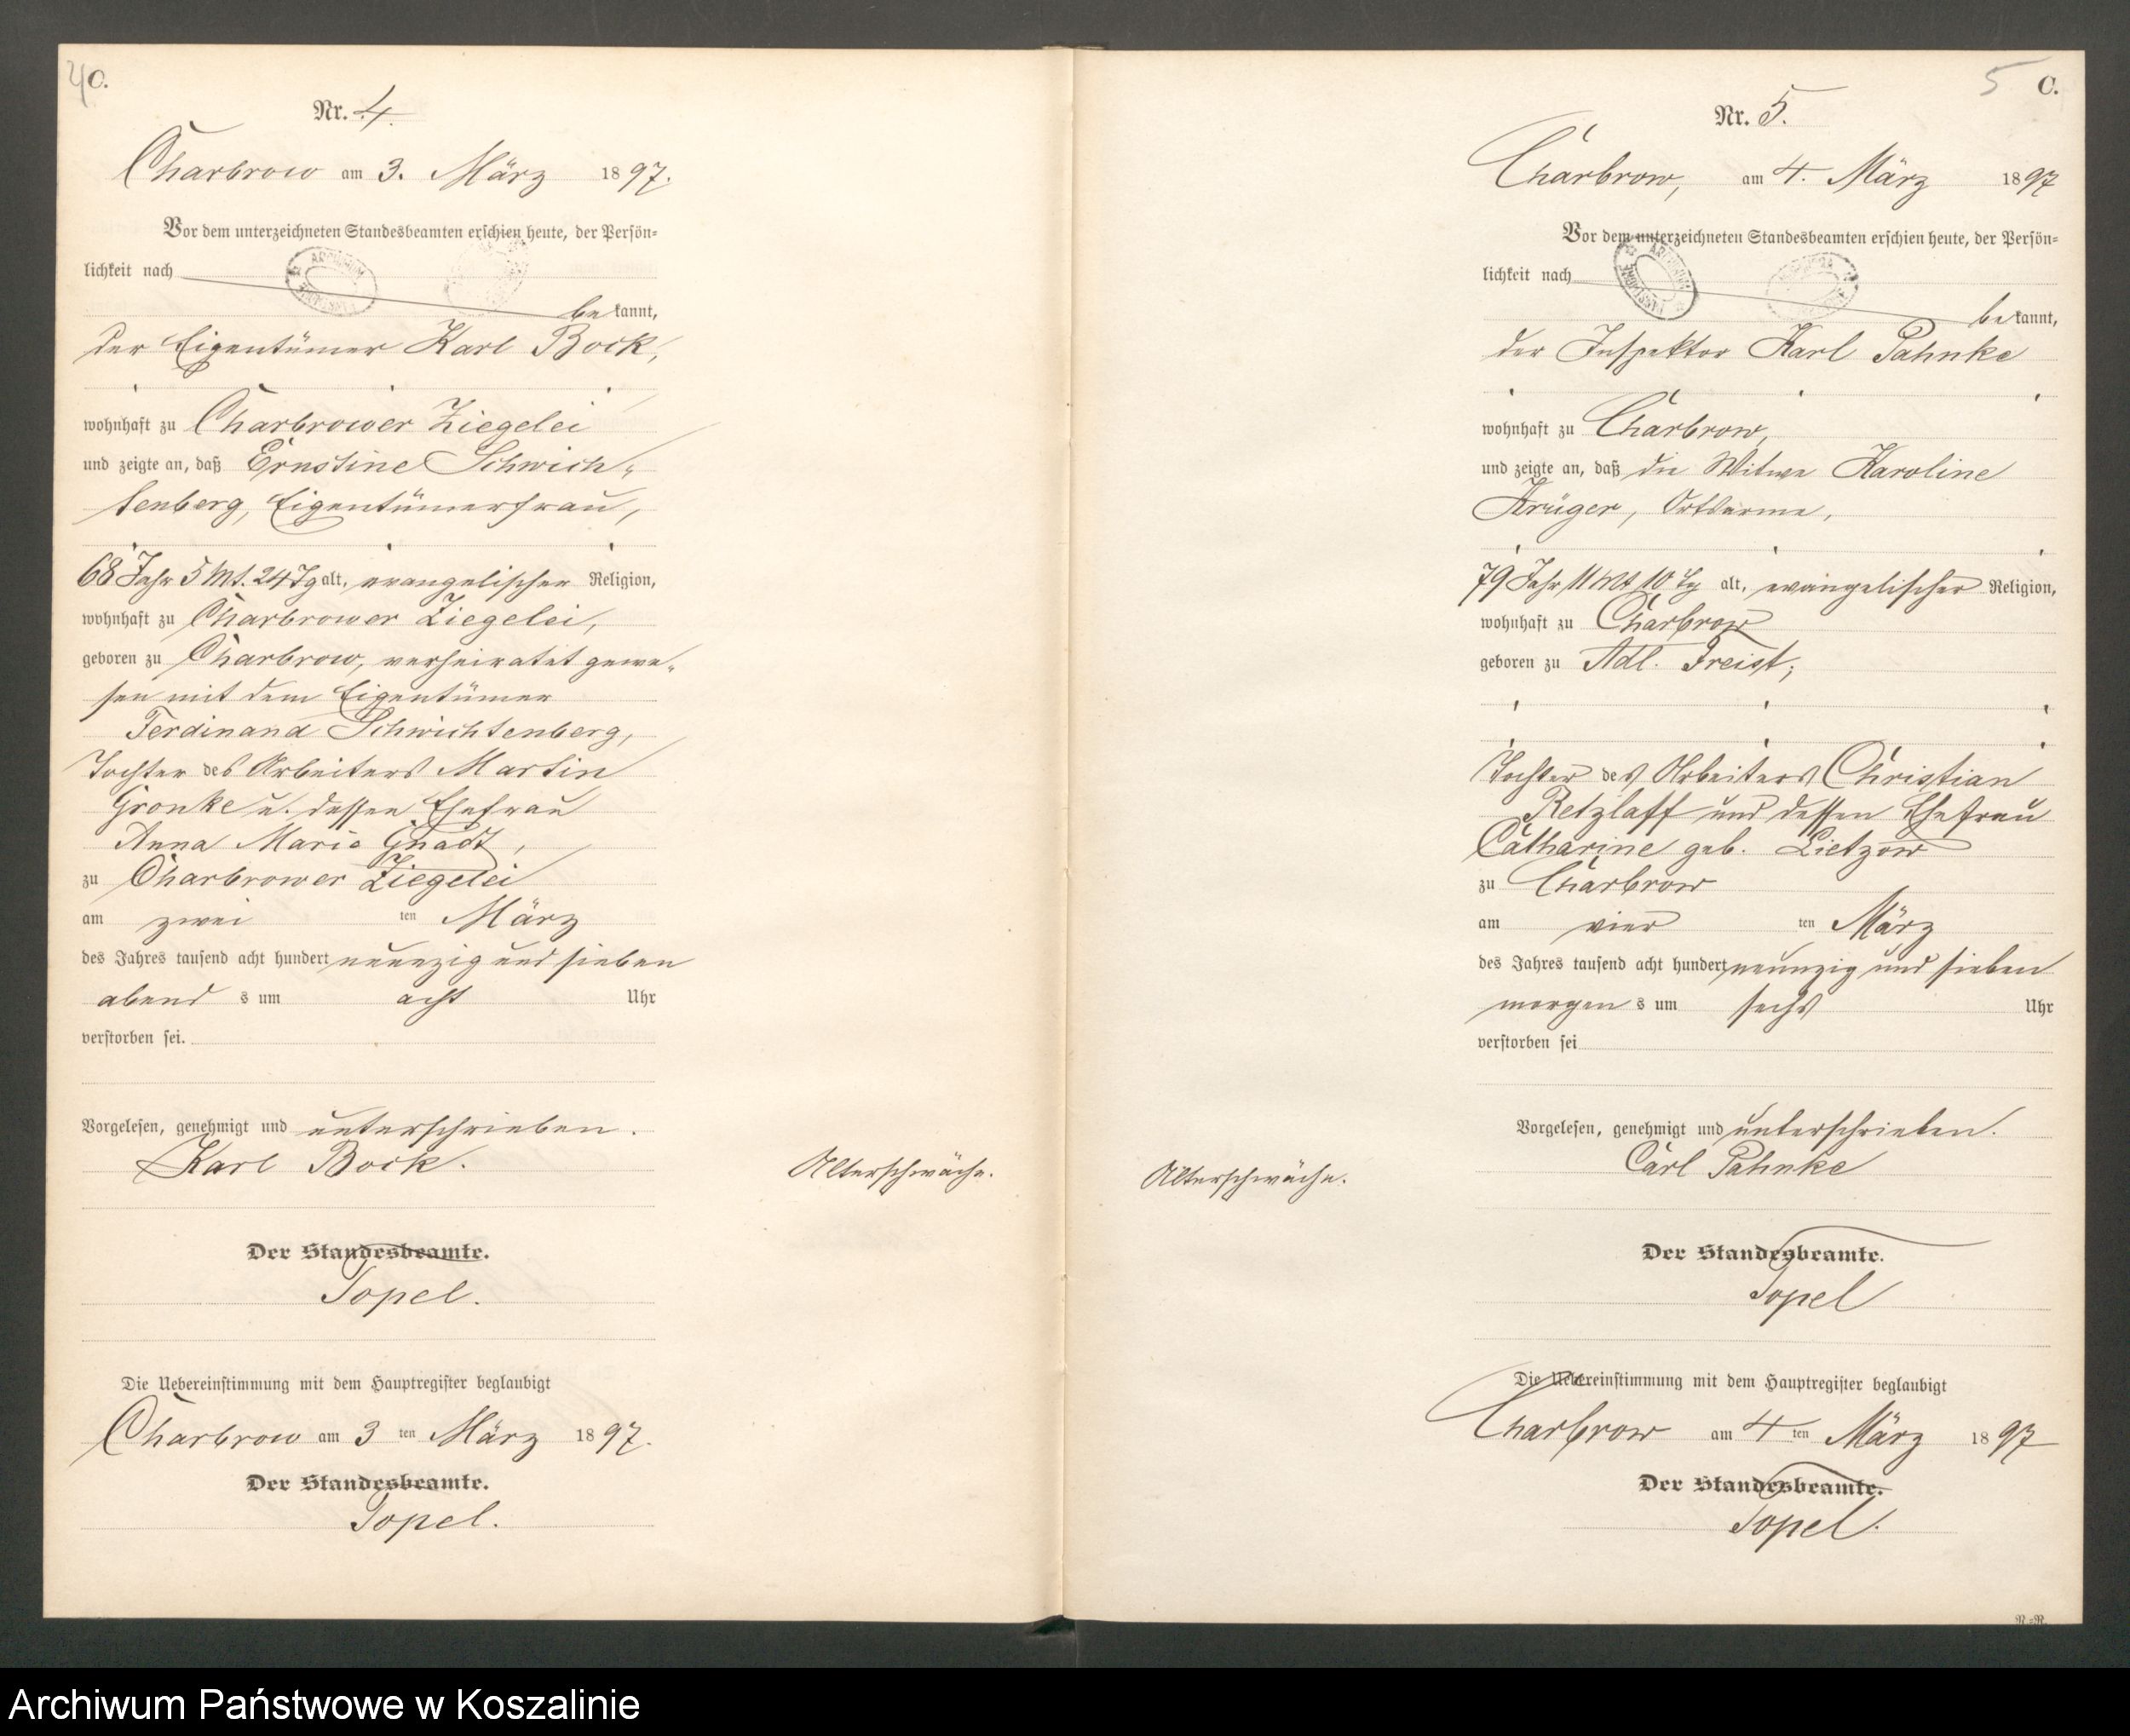 4 C.
Nr. 4.
Charbrow am 3. März 1897.
Vor dem unterzeichneten Standesbeamten erschien heute, der Persön-
lichkeit nach
bekannt,
der Eigentümer Karl Bock,
wohnhaft zu Charbrower Ziegelei
und zeigte an, daß Ernstine Schwich-
tenberg, Eigentümerfrau,
68 Jahr 5 Mt. 24 Tg alt, evangelischer Religion,
wohnhaft zu Charbrower Ziegelei,
geboren zu Charbrow, verheiratet gewe-
sen mit dem Eigentümer
Ferdinand Schwichtenberg,
Tochter des Arbeiters Martin
Gronke u. dessen Ehefrau
Anna Marie Gnadt,
zu Charbrower Ziegelei
am zwei ten März
des Jahres tausend acht hundert neunzig und sieben
abend s um acht Uhr
verstorben sei.
Vorgelesen, genehmigt und unterschrieben.
Karl Bock.
Alterschwäche.
Der Standesbeamte.
Topel.
Die Uebereinstimmung mit dem Hauptregister beglaubigt
Charbrow am 3 ten März 1897.
Der Standesbeamte.
Topel.
5 C.
Nr. 5.
Charbrow, am 4. März 1897
Vor dem unterzeichneten Standesbeamten erschien heute, der Persön-
lichkeit nach
bekannt,
der Inspektor Karl Pahnke
wohnhaft zu Charbrow,
und zeigte an, daß die Witwe Karoline
Krüger, Ortsarme,
79 Jahr 11 Mt 10 Tg alt, evangelischer Religion,
wohnhaft zu Charbrow
geboren zu Adl. Freist;
Tochter des Arbeiters Christian
Retzlaff und dessen Ehefrau
Catharine geb. Lietzow
zu Charbrow
am vier ten März
des Jahres tausend acht hundert neunzig und sieben
morgen s um sechs Uhr
verstorben sei
Vorgelesen, genehmigt und unterschrieben.
Carl Pahnke
Alterschwäche.
Der Standesbeamte.
Topel
Die Uebereinstimmung mit dem Hauptregister beglaubigt
Charbrow am 4 ten März 1897
Der Standesbeamte.
Topel.
R.=R.
Archiwum Państwowe w Koszalinie